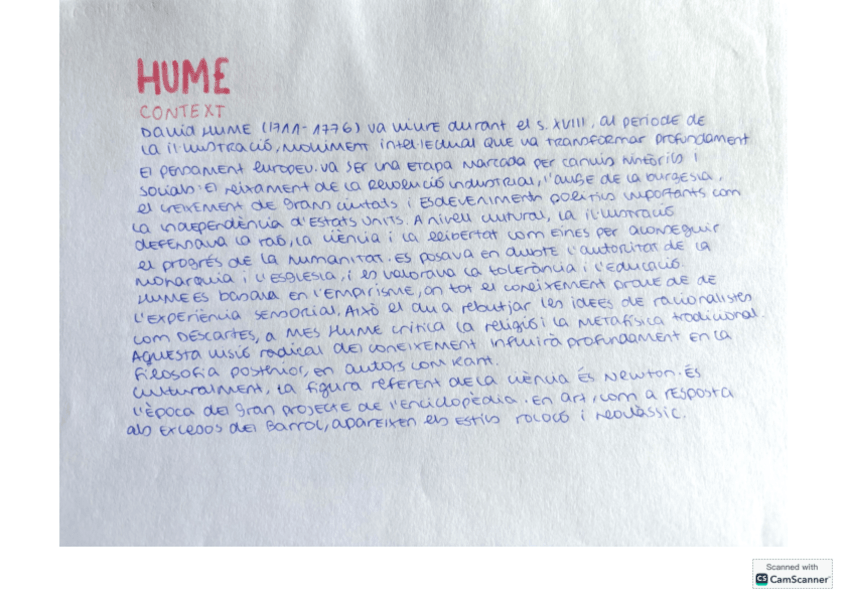 HUME
CONTEXT
David HUME (1711-1776) va viure durant el s. XVIII, al període de
la il·lustració, moviment intel·lectual que va transformar profundament
el pensament europeu. va ser una etapa marcada per canvis històrics i
socials. El naixament de la Revolució industrial, l'auge de la burgesia,
el creixement de grans ciutats i esdeveniments polítics importants com
la independència d'Estats Units. A nivell cultural, la il·lustració
defensava la raó, la ciència i la llibertat com eines per aconseguir
el progrés de la humanitat. Es posava en dubte l'autoritat de la
monarquia i l'església, i es valorava la tolerància i l'educació.
HUME es basava en l'empirisme, on tot el coneixement prové de
l'experiència sensorial. Això el duia rebutjar les idees de racionalistes
com Descartes, a mes Hume critica la religió i la metafísica tradicional.
Aquesta visió radical del coneixement influirà profundament en la
filosofia posterior, en autors com Kant.
Culturalment, la figura referent de la ciència és Newton. És
l'època del gran projecte de l'enciclopèdia. En art, com a resposta
als excessos del Barroc, apareixen els estils rococó i neoclàssic.
Scanned with
CS CamScanner